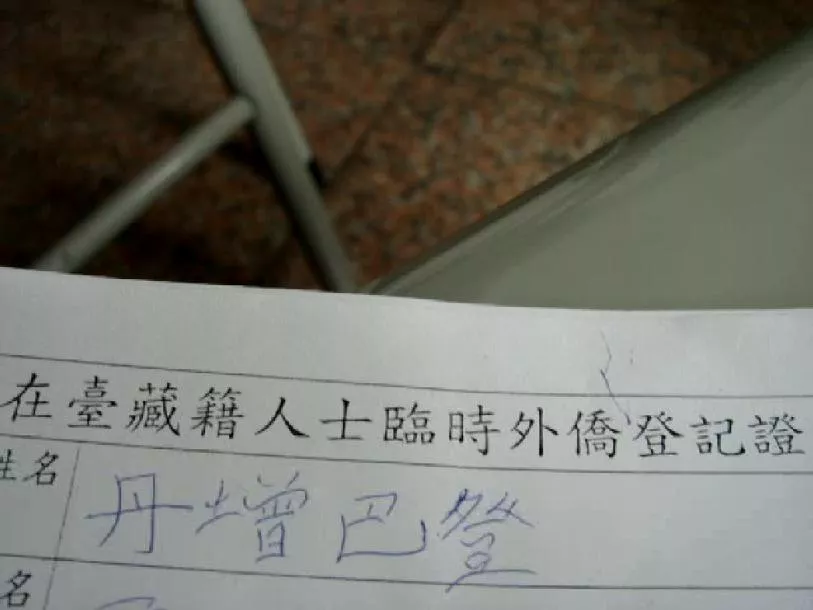 在臺藏籍人士臨時外僑登記證
姓名 丹增巴登
名